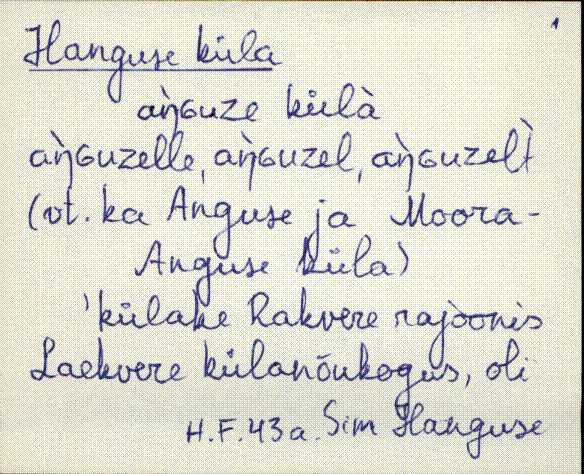 1
Hanguse küla
àŋɢuze külà
àŋɢuzelle, àŋɢuzel, àŋɢuzelt̀
(vt. ka Anguse ja Moora-
Anguse küla)
'külake Rakvere rajoonis
Laekvere külanõukogus, oli
H.F.43a. Sim Hanguse